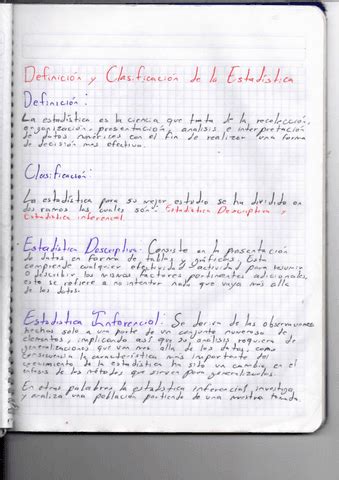 Definición y Clasificación de la Estadística
Definición:
La estadística es la ciencia que trata de la recolección,
organización, presentación, analisis e interpretación
de datos numéricos con el fin de realizar una forma
de decisión mas efectiva.
Clasificación:
La estadística para su mejor estudio se ha dividido en
dos ramas las cuales son: Estadística Descriptiva y
Estadística inferencial.
Estadística Descriptiva: Consiste en la presentación
de datos en forma de tablas y gráficas. Esta
comprende cualquier actividad para resumir
o describir los mismos factores pertinentes adicionales,
esto se refiere a no intentar nada que vaya más allá
de los datos.
Estadística Inferencial: Se deriva de las observaciones
hechas solo a una parte de un conjunto numeroso de
elementos, implicando así que su análisis requiera de
generalizaciones que van más alla de los datos, como
consecuencia la característica más importante del
crecimiento de la estadística ha sido un cambio en el
énfasis de los métodos que sirven para generalizarlos.
En otras palabras la estadística inferencial, investiga
y analiza una población partiendo de una muestra tomada.